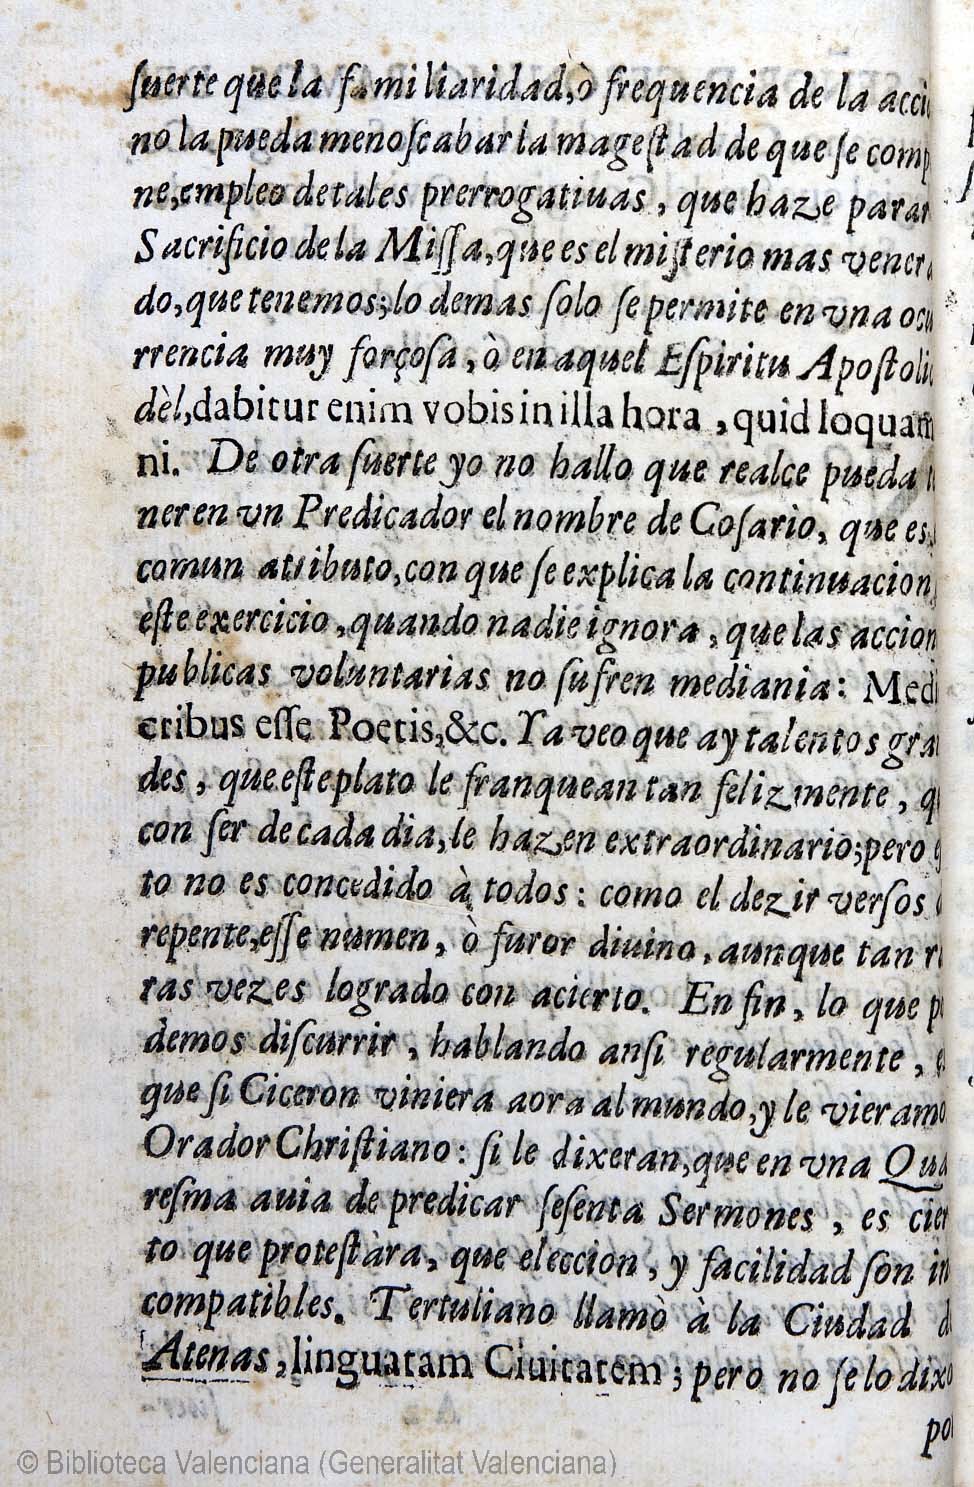 ſuerte que la familiaridad, ò frequencia de la acci
no la pueda menoſcabar la mageſtad de que ſe comp
ne, empleo de tales prerrogatiuas, que haze parar
Sacrificio de la Miſſa, que es el miſterio mas venera
do, que tenemos; lo demas ſolo ſe permite en vna ocu
rrencia muy forçoſa, ò en aquel Eſpiritu Apoſtoli
dèl, dabitur enim vobis in illa hora, quid loquam
ni. De otra ſuerte yo no hallo que realce pueda
ner en vn Predicador el nombre de Coſario, que es
comun atributo, con que ſe explica la continuacion
eſte exercicio, quando nadie ignora, que las accion
publicas voluntarias no sufren mediania: Medi
cribus eſſe Poetis, &c. Ya veo que ay talentos gra
des, que eſte plato le franquean tan felizmente, q
con ſer de cada dia, le hazen extraordinario; pero
to no es concedido à todos: como el dezir verſos
repente, eſſe numen, ò furor diuino, aunque tan r
ras vezes logrado con acierto. En fin, lo que p
demos diſcurrir, hablando anſi regularmente,
que ſi Ciceron viniera aora al mundo, y le vieramo
Orador Chriſtiano: ſi le dixeran, que en vna Qua
reſma auia de predicar ſeſenta Sermones, es cier
to que proteſtàra, que eleccion, y facilidad ſon in
compatibles. Tertuliano llamò à la Ciudad d
Atenas, linguatam Ciuitatem; pero no ſe lo dixo
po
© Biblioteca Valenciana (Generalitat Valenciana)